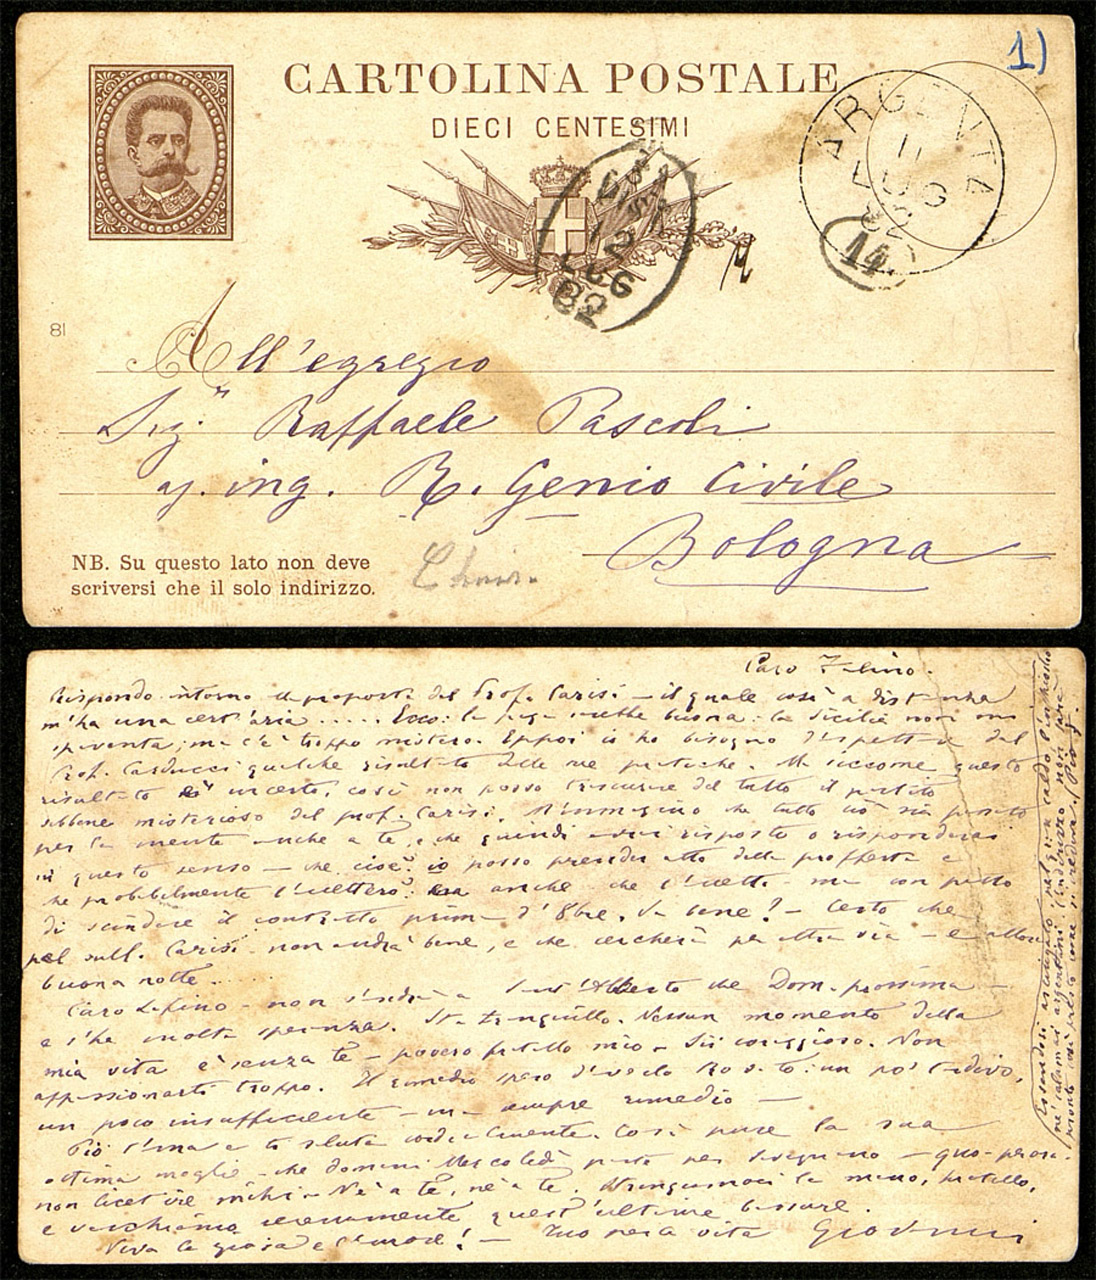 1)
CARTOLINA POSTALE
DIECI CENTESIMI
ARGENTA
11
LUG
82
12
LUG
82
81
All'egregio
Sig.r Raffaele Pascoli
ing. R. Genio Civile
Bologna
NB. Su questo lato non deve
scriversi che il solo indirizzo.
Caro Falino.
Rispondo intorno alla proposta del Prof. Carisi – il quale così a distanza
m'ha una cert'aria ..... Ecco: la paga sarebbe buona: la Sicilia non mi
spaventa; ma c'è troppo mistero. Eppoi io ho bisogno d'aspettare dal
Prof. Carducci qualche risultato delle sue pratiche. Ma siccome questo
risultato è incerto, così non posso trascurare del tutto il partito
sebbene misterioso del prof. Carisi. M'immagino che tutto ciò sia passato
per la mente anche a te, e che quindi avrai risposto o risponderai
in questo senso – che cioè io posso prender atto della profferta e
che probabilmente l'accetterò: anche che l'accetti ma con patto
di scindere il contratto prima d'8bre. Va bene? – Certo che
pel sull. Carisi non andrà bene, e che cercherà per altra via – e allora
buona notte....
Caro Lafino – non s'andrà a Sant'Alberto che Dom. prossima –
e s'ha molta speranza. Sta tranquillo. Nessun momento della
mia vita è senza te – povero fratello mio – Sii coraggioso. Non
appassionarti troppo. Il rimedio spero d'averlo trovato: un po' tardivo,
un poco insufficiente – ma sempre rimedio –
Pio t'ama e ti saluta cordialmente. Così pure la sua
ottima moglie – che domani Mercoledì parte per
non licet ire mihi – Nè a te, nè a te. Stringiamoci la mano, fratello,
e vecchiamo serenamente quest'ultime
Viva la gioia e l'amore! – Tuo per la vita Giovanni
Essendosi asciugato pel gran caldo l'inchiostro
ne' calamai argentini